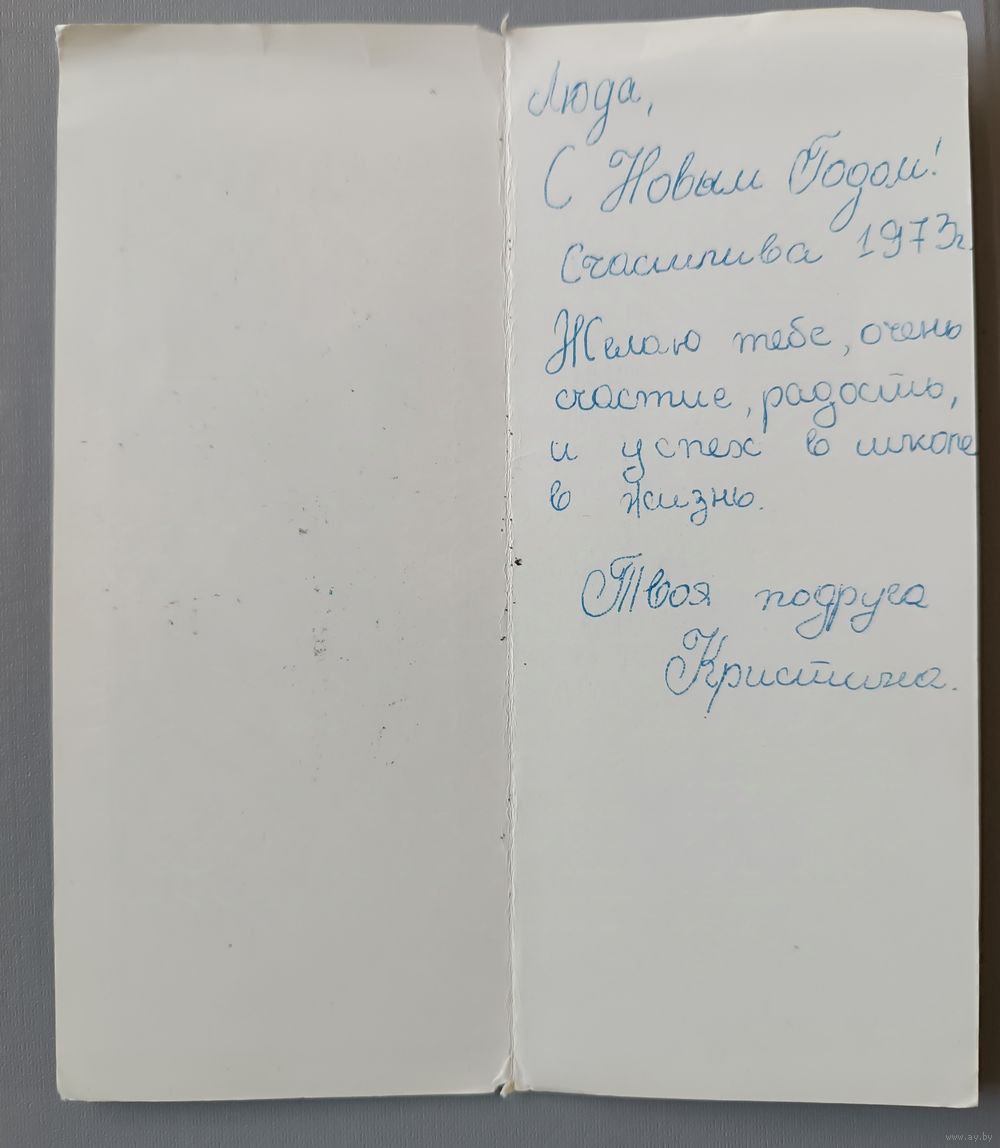 Люда,
С Новым Годом!
Счастлива 1973г.
Желаю тебе, очень
счастие, радость,
и успех в школе
в жизнь.
Твоя подруга
Кристина.
www.ay.by